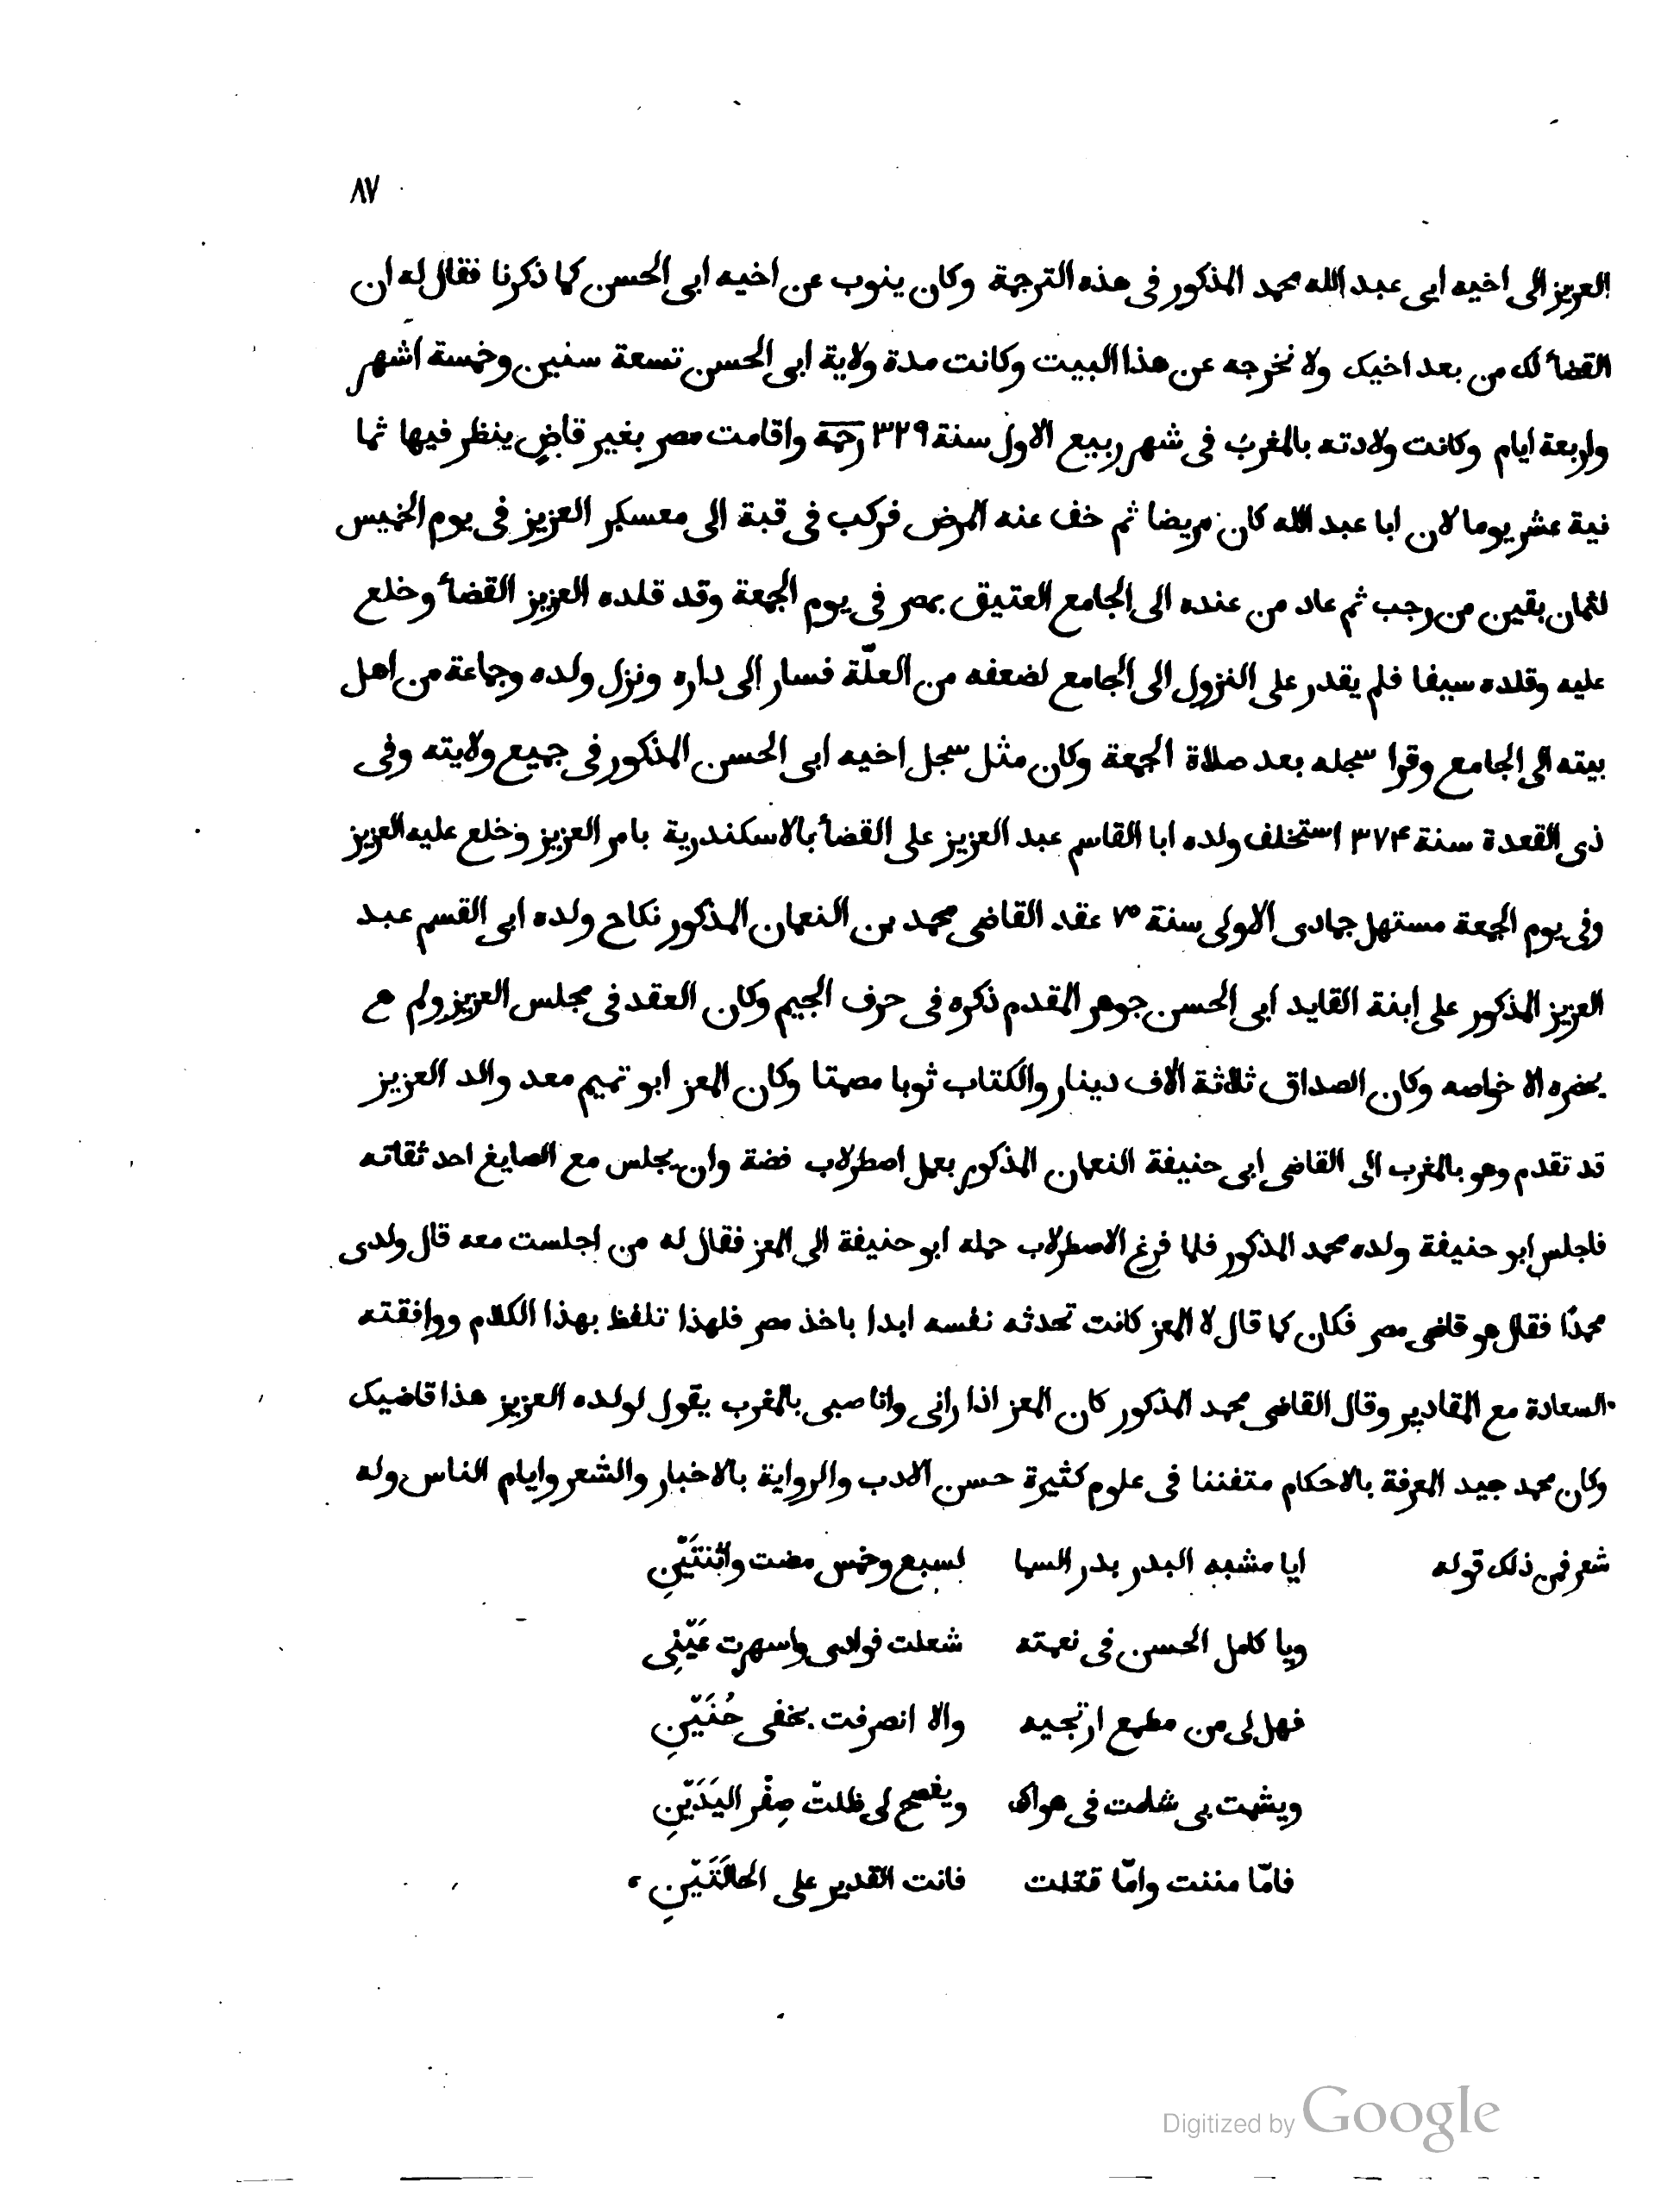 ٨٧
العزيز الى اخيه ابى عبد الله محمد المذكور فى هذه الترجمة وكان ينوب عن اخيه ابى الحسن كما ذكرنا فقال له ان
القضاء لك من بعد اخيك ولا نخرجه عن هذا البيت وكانت مدة ولاية ابى الحسن تسعة سنين وخمسة اشهر
واربعة ايام وكانت ولادته بالمغرب فى شهر ربيع الاول سنة ٣٢٩ رحمه واقامت مصر بغير قاضٍ ينظر فيها ثما
نية عشر يوما لان ابا عبد الله كان مريضا ثم خف عنه المرض فركب فى قبة الى معسكر العزيز فى يوم الخميس
لثمان بقين من رجب ثم عاد من عنده الى الجامع العتيق بمصر فى يوم الجمعة وقد قلده العزيز القضاء وخلع
عليه وقلده سيفا فلم يقدر على النزول الى الجامع لضعفه من العلّة فسار إلى داره ونزل ولده وجماعة من اهل
بيته الى الجامع وقرا سجله بعد صلاة الجمعة وكان مثل سجل اخيه ابى الحسن المذكور فى جميع ولايته وفى
ذى القعدة سنة ٣٧۴ استخلف ولده ابا القاسم عبد العزيز على القضاء بالاسكندرية بامر العزيز وخلع عليه العزيز
وفى يوم الجمعة مستهل جمادى الاولى سنة ٧٥ عقد القاضى محمد بن النعمان المذكور نكاح ولده ابى القسم عبد
العزيز المذكور على ابنة القايد ابى الحسن جوهر المقدم ذكره فى حرف الجيم وكان العقد فى مجلس العزيز ولم ع
يحضره الا خواصه وكان الصداق ثلاثة الاف دينار والكتاب ثوبا مصمتا وكان المعز ابو تميم معد والد العزيز
قد تقدم وهو بالمغرب الى القاضى ابى حنيفة النعمان المذكور بعمل اصطرلاب فضة وان يجلس مع الصايغ احد ثقاته
فاجلس ابو حنيفة ولده محمد المذكور فلما فرغ الاصطرلاب حمله ابو حنيفة الى المعز فقال له من اجلست معه قال ولدى
محمدًا فقال هو قاضى مصر فكان كما قال لا المعز كانت تحدثه نفسه ابدا باخذ مصر فلهذا تلفظ بهذا الكلام ووافقته
السعادة مع المقادير وقال القاضى محمد المذكور كان المعز اذا رانى وانا صبى بالمغرب يقول لولده العزيز هذا قاضيك
وكان محمد جيد المعرفة بالاحكام متفننا فى علوم كثيرة حسن الادب والرواية بالاخبار والشعر وايام الناس وله
شعر فمن ذلك قوله ايا مشبه البدر بدر السما لسبع وخمس مضت واثنتَيْنِ
ويا كامل الحسن فى نعمته شعلت فوادى واسهرت عَيْنِى
فهل لى من مطمع ارتجيه والا انصرفت بخفى حُنَيْنِ
ويشمت بى شامت فى هواك ويفصح لى ظلتَ صِفْر اليَدَيْنِ
فامّا مننت وامّا قتلت فانت القدير على الحالَتَيْنِ
Digitized by Google